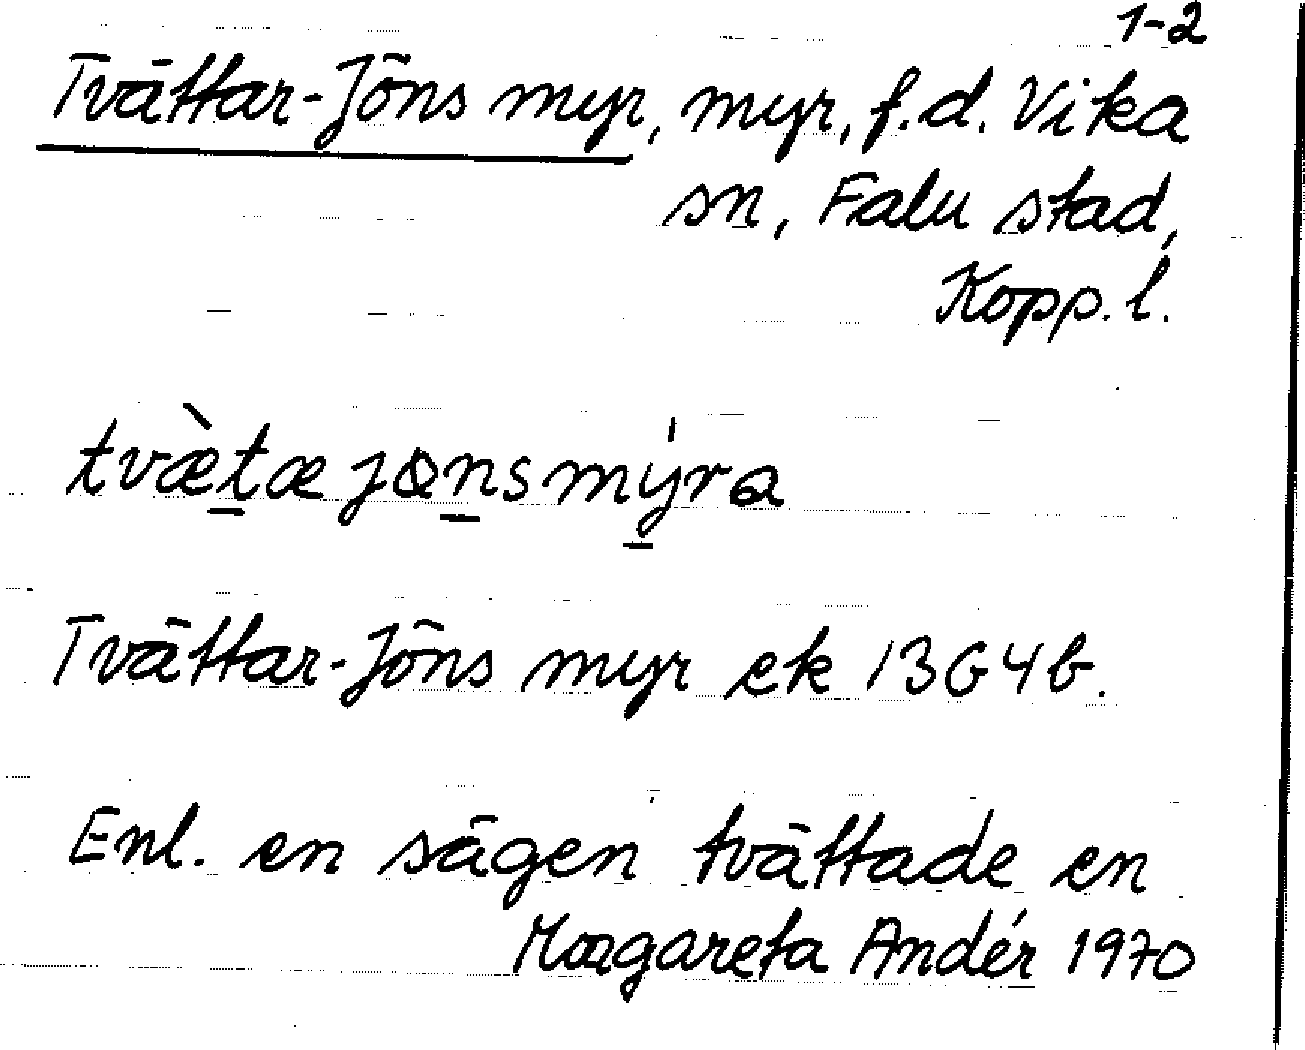 1-2
Tvättar-Jöns myr, myr, f.d. Vika
sn, Falu stad,
Kopp. l.
tvæ̀t̲æjɷn̲smý̲ra
Tvättar-Jöns myr ek 13G4b.
Enl. en sägen tvättade en
Margareta Andér 1970